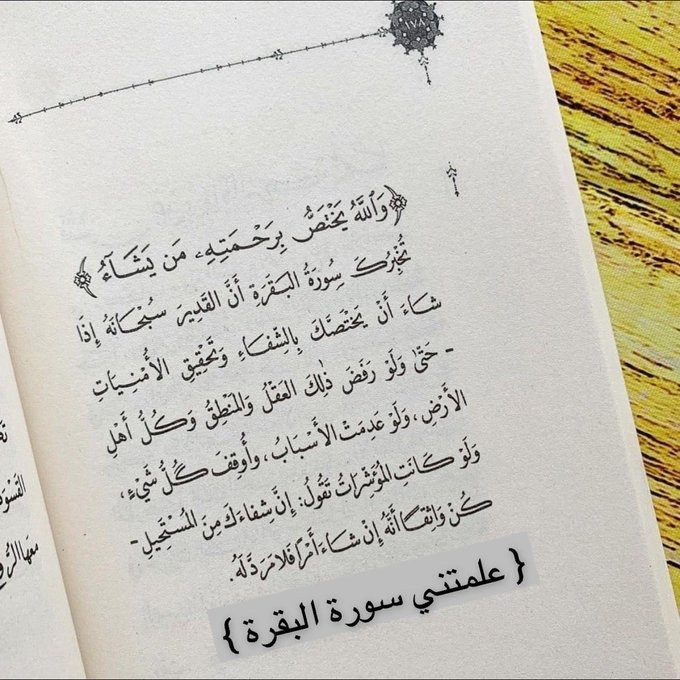 ١٧٨
﴿وَاللَّهُ يَخْتَصُّ بِرَحْمَتِهِۦ مَن يَشَآءُ﴾
تُخْبِرُكَ سُورَةُ البَقَرَةِ أَنَّ القَدِيرَ سُبْحَانَهُ إِذَا
شَاءَ أَنْ يَخْتَصَّكَ بِالشِّفَاءِ وَتَحْقِيقِ الأُمْنِيَاتِ
- حَتَّىٰ وَلَوْ رَفَضَ ذٰلِكَ العَقْلُ وَالمَنْطِقُ وَكُلُّ أَهْلِ
الأَرْضِ، وَلَوْ عَدِمَتْ الأَسْبَابُ، وَأُوقِفَ كُلُّ شَيْءٍ،
وَلَوْ كَانَتِ المُؤَشِّرَاتُ تَقُولُ: إِنَّ شِفَاءَكَ مِنَ المُسْتَحِيلِ -
كُنْ وَاثِقًا أَنَّهُ إِنْ شَاءَ أَمْرًا فَلَا مَرَدَّ لَهُ.
{ علمتني سورة البقرة }